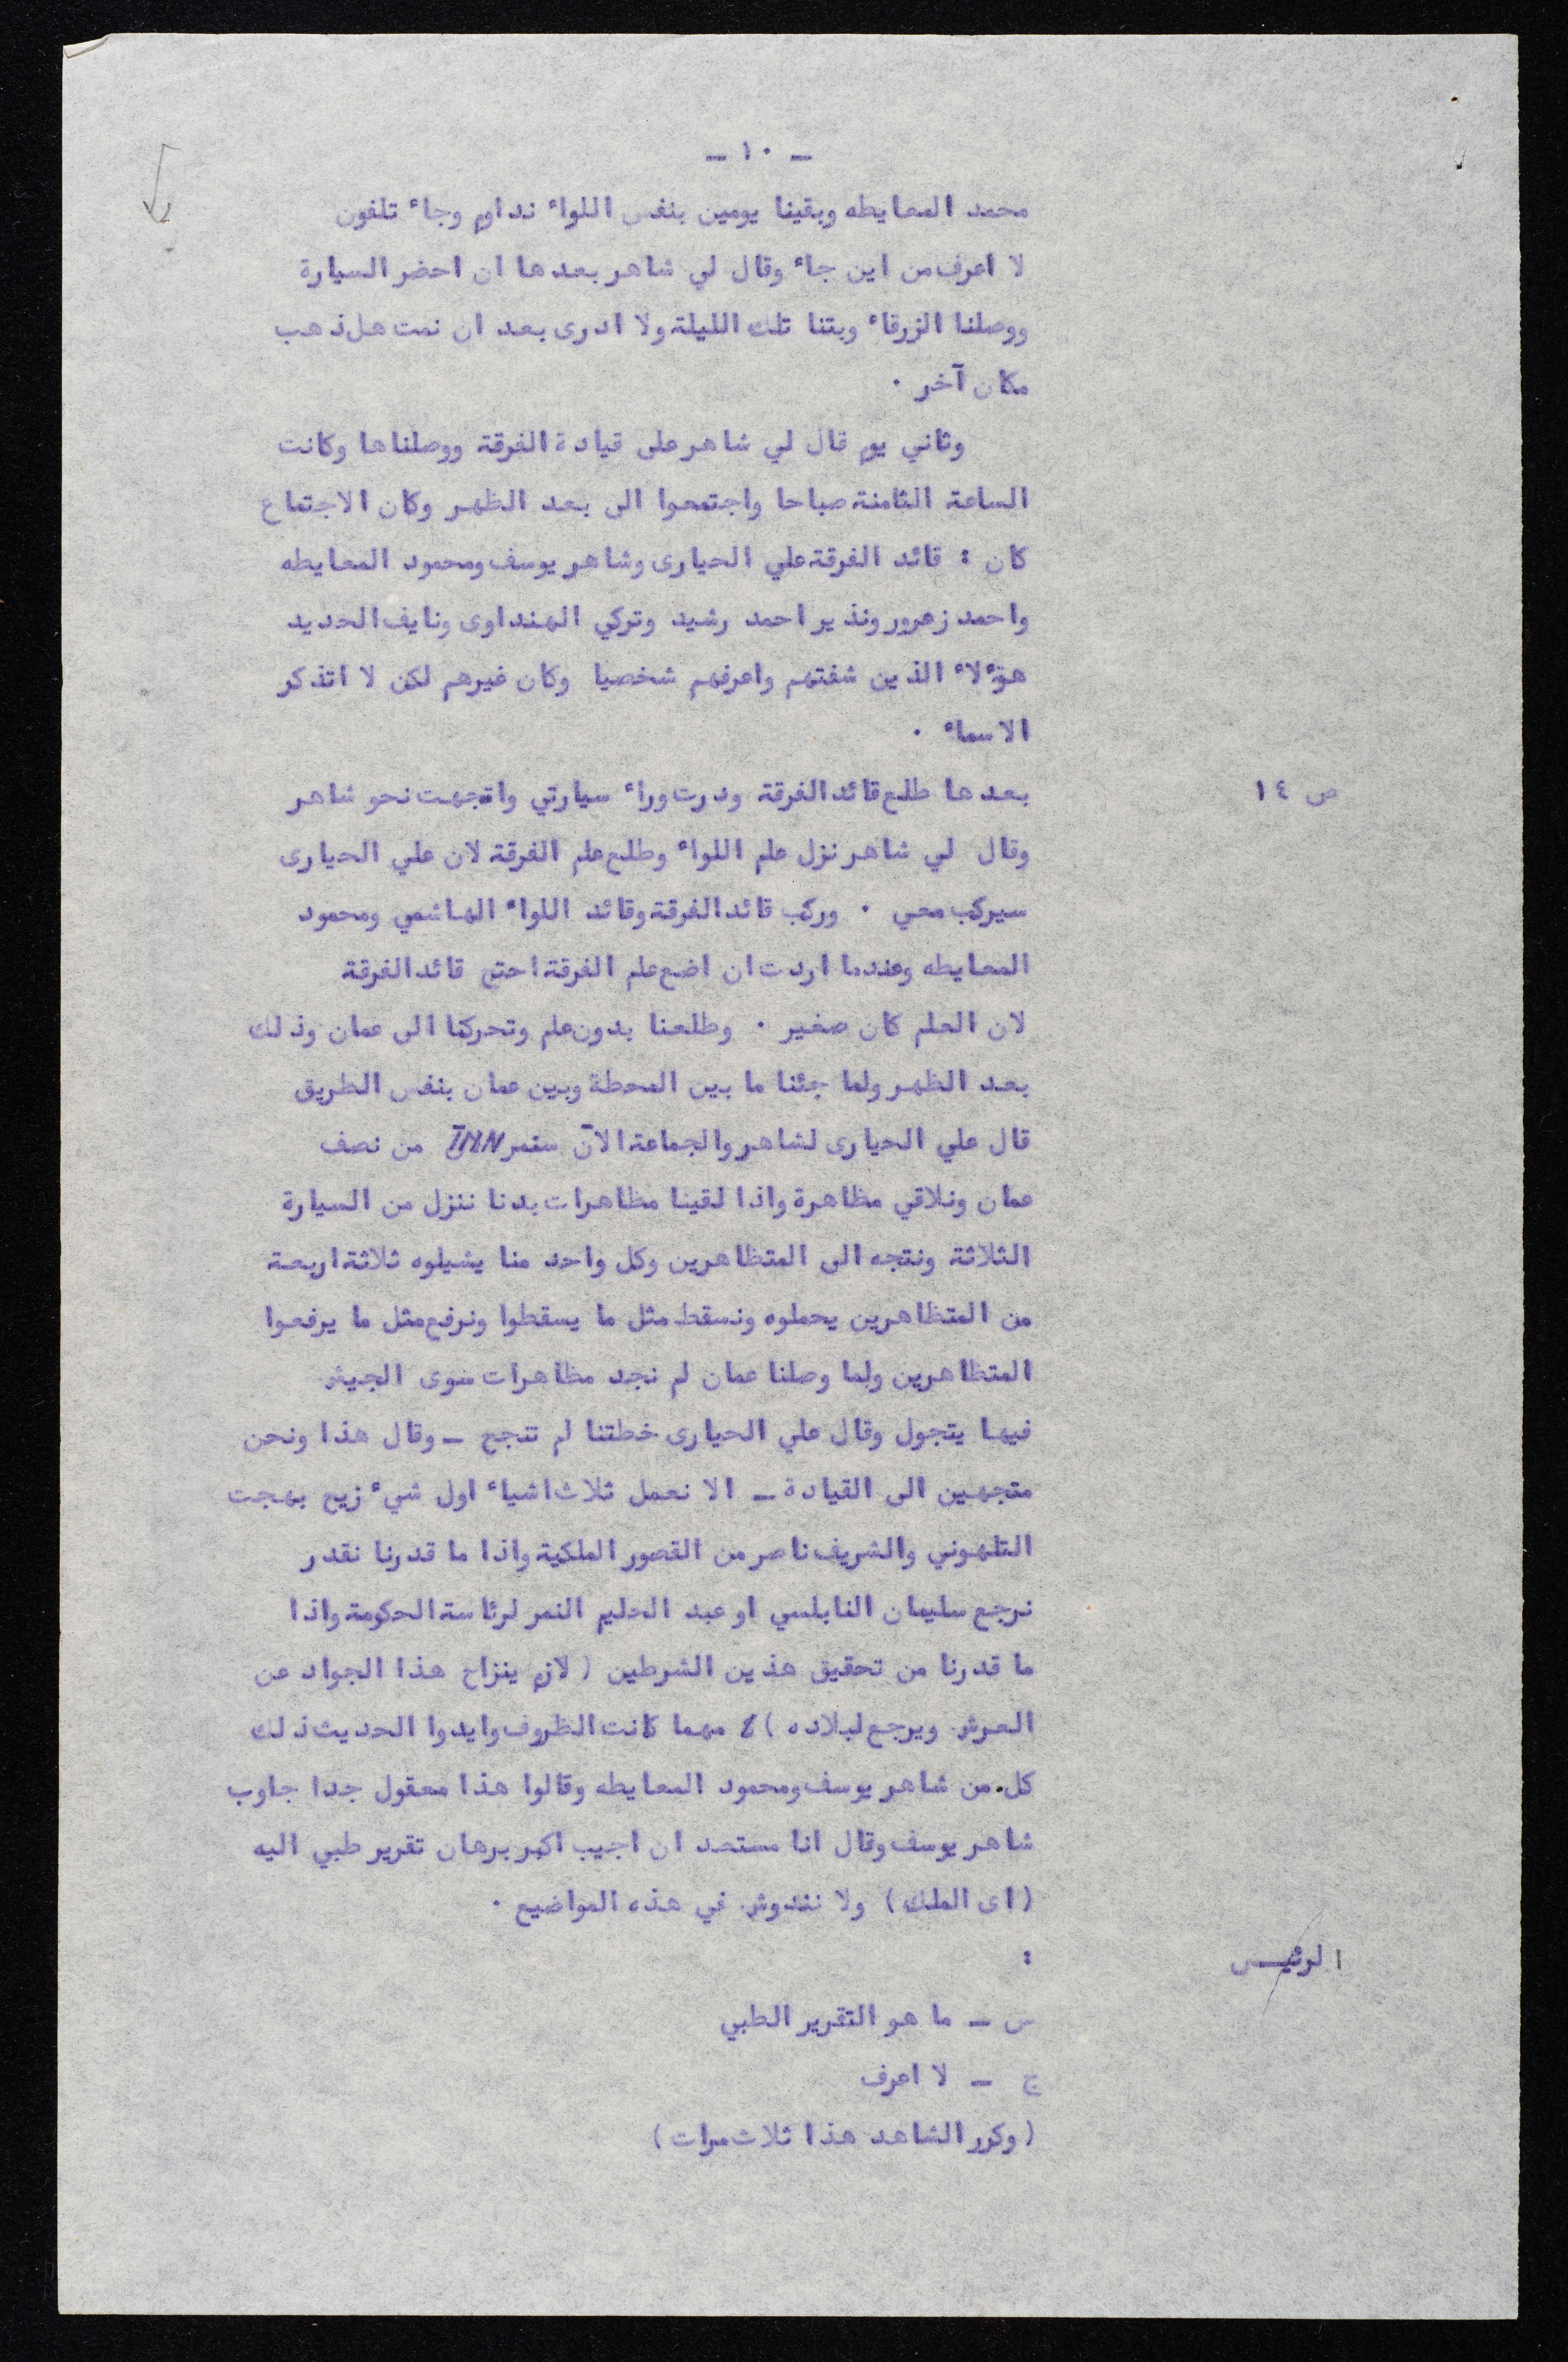 - ١٠ -
محمد المعايطه وبقينا يومين بنفس اللواء نداوم وجاء تلفون
لا اعرف من اين جاء وقال لي شاهر بعدها ان احضر السيارة
ووصلنا الزرقاء وبتنا تلك الليلة ولا ادرى بعد ان نمت هل ذهب
مكان آخر .
وثاني يوم قال لي شاهر على قيادة الفرقة ووصلناها وكانت
الساعة الثامنة صباحا واجتمعوا الى بعد الظهر وكان الاجتماع
كان : قائد الفرقة علي الحيارى وشاهر يوسف ومحمود المعايطه
واحمد زعرور ونذير احمد رشيد وتركي الهنداوى ونايف الحديد
هؤلاء الذين شفتهم واعرفهم شخصيا وكان غيرهم لكن لا اتذكر
الاسماء .
ص ١٤ بعدها طلع قائد الفرقة ودرت وراء سيارتي واتجهت نحو شاهر
وقال لي شاهر نزل علم اللواء وطلع علم الفرقة لان علي الحيارى
سيركب معي . وركب قائد الفرقة وقائد اللواء الهاشمي ومحمود
المعايطه وعندما اردت ان اضع علم الفرقة احتج قائد الفرقة
لان العلم كان صغير . وطلعنا بدون علم وتحركنا الى عمان وذلك
بعد الظهر ولما جئنا ما بين المحطة وبين عمان بنفس الطريق
قال علي الحيارى لشاهر والجماعة الآن سنمر من نصف
عمان ونلاقي مظاهرة واذا لقينا مظاهرات بدنا ننزل من السيارة
الثلاثة ونتجه الى المتظاهرين وكل واحد منا يشيلوه ثلاثة اربعة
من المتظاهرين يحملوه ونسقط مثل ما يسقطوا ونرفع مثل ما يرفعوا
المتظاهرين ولما وصلنا عمان لم نجد مظاهرات سوى الجيش
فيها يتجول وقال علي الحيارى خطتنا لم تنجح - وقال هذا ونحن
متجهين الى القيادة - الا نعمل ثلاث اشياء اول شيء نزيح بهجت
التلهوني والشريف ناصر من القصور الملكية واذا ما قدرنا نقدر
نرجع سليمان النابلسي او عبد الحليم النمر لرئاسة الحكومة واذا
ما قدرنا من تحقيق هذين الشرطين ( لازم ينزاح هذا الجواد عن
العرش ويرجع لبلاده ) مهما كانت الظروف وايدوا الحديث ذلك
كل من شاهر يوسف ومحمود المعايطه وقالوا هذا معقول جدا جاوب
شاهر يوسف وقال انا مستعد ان اجيب اكبر برهان تقرير طبي اليه
( اى الملك ) ولا في هذه المواضيع .
الرئيس :
س - ما هو التقرير الطبي
ج - لا اعرف
( وكرر الشاهد هذا ثلاث مرات )